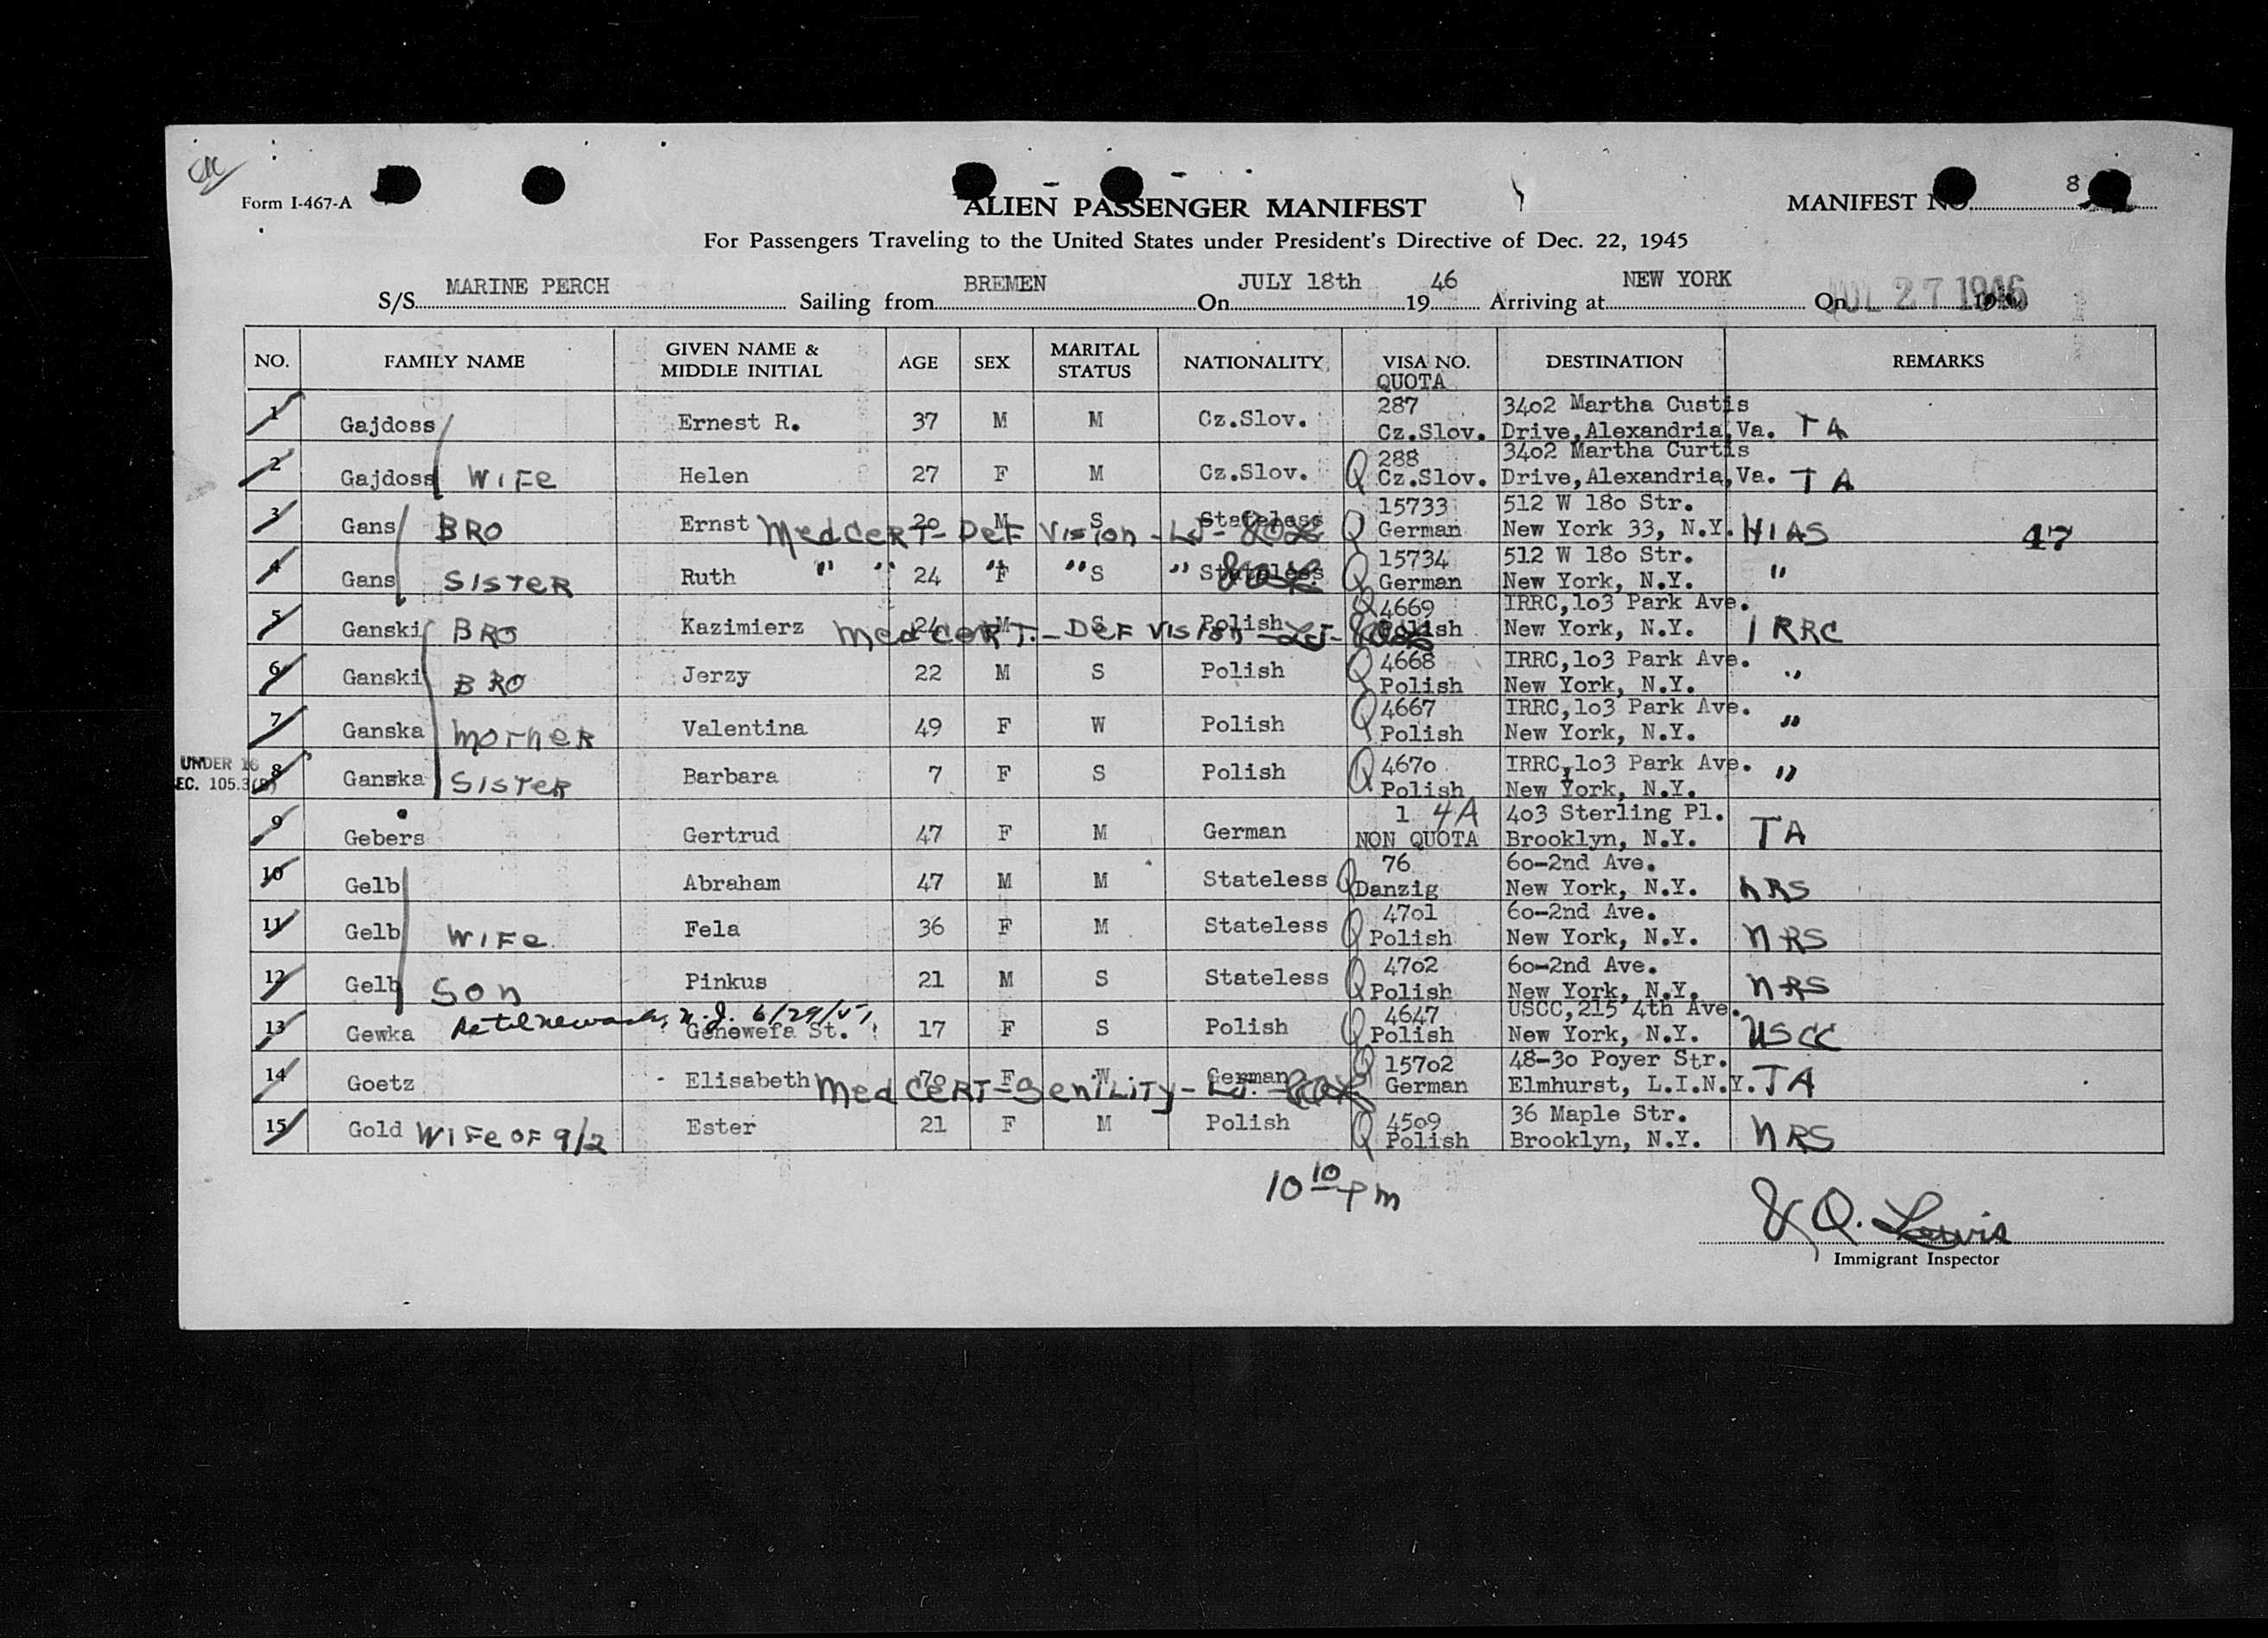 Form I-467-A
ALIEN PASSENGER MANIFEST
MANIFEST NO. 8
For Passengers Traveling to the United States under President's Directive of Dec. 22, 1945
S/S MARINE PERCH Sailing from BREMEN On JULY 18th 1946 Arriving at NEW YORK On JUL 27 1946
NO. FAMILY NAME GIVEN NAME & MIDDLE INITIAL AGE SEX MARITAL STATUS NATIONALITY VISA NO. QUOTA DESTINATION REMARKS
1 Gajdoss Ernest R. 37 M M Cz.Slov. 287 Cz.Slov. 3402 Martha Custis Drive,Alexandria,Va. TA
2 Gajdoss WIFE Helen 27 F M Cz.Slov. Q 288 Cz.Slov. 3402 Martha Curtis Drive,Alexandria,Va. TA
3 Gans BRO Ernst 20 M S Stateless Q 15733 German 512 W 180 Str. New York 33, N.Y. HIAS 47
Med CERT- DEF Vision
4 Gans SISTER Ruth " " 24 " F " S " Stateless Q 15734 German 512 W 180 Str. New York, N.Y. "
5 Ganski BRO Kazimierz 24 M S Polish Q 4669 Polish IRRC,103 Park Ave. New York, N.Y. IRRC
Med CERT.- DEF Vision
6 Ganski BRO Jerzy 22 M S Polish Q 4668 Polish IRRC,103 Park Ave. New York, N.Y. "
7 Ganska MOTHER Valentina 49 F W Polish Q 4667 Polish IRRC,103 Park Ave. New York, N.Y. "
UNDER 16
EC. 105.3(B)
8 Ganska SISTER Barbara 7 F S Polish Q 4670 Polish IRRC,103 Park Ave. New York, N.Y. "
9 Gebers Gertrud 47 F M German 1 4A NON QUOTA 403 Sterling Pl. Brooklyn, N.Y. TA
10 Gelb Abraham 47 M M Stateless Q 76 Danzig 60-2nd Ave. New York, N.Y. NRS
11 Gelb WIFE Fela 36 F M Stateless Q 4701 Polish 60-2nd Ave. New York, N.Y. NRS
12 Gelb SON Pinkus 21 M S Stateless Q 4702 Polish 60-2nd Ave. New York, N.Y. NRS
N.J. 6/29/51
13 Gewka Genowefa St. 17 F S Polish Q 4647 Polish USCC,215 4th Ave. New York, N.Y. USCC
14 Goetz - Elisabeth 70 F W German Q 15702 German 48-30 Poyer Str. Elmhurst, L.I.N.Y. TA
Med CERT-SENILITY
15 Gold WIFE OF 9/2 Ester 21 F M Polish Q 4509 Polish 36 Maple Str. Brooklyn, N.Y. NRS
10 10 PM
Q. Lewis
Immigrant Inspector